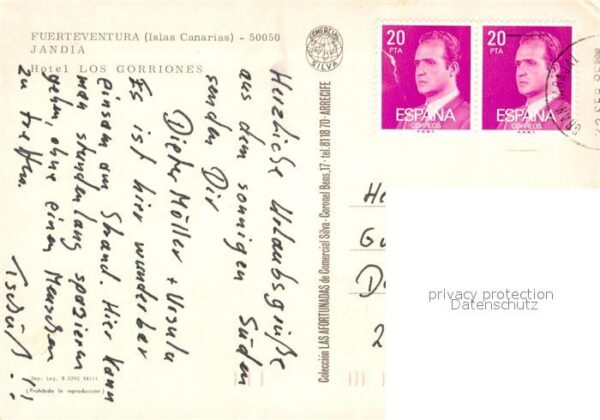 FUERTEVENTURA (Islas Canarias) - 50050
JANDIA
Hotel LOS GORRIONES
Herzliche Urlaubsgrüße
aus dem sonnigen Süden
senden Dir
Dieter Möller + Ursula
Es ist hier wunderbar
einsam am Strand. Hier kann
man stundenlang spazieren
gehen, ohne einen Menschen
zu treffen.
Tschüß!!
Dep. Leg. B
(Prohibida la reproducción)
COMERCIAL
SILVA
Colección LAS AFORTUNADAS de Comercial Silva - Coronel Bens, 17 - tel. 81 18 70 - ARRECIFE
20
PTA
ESPAÑA
CORREOS
F.N.M.T.
20
PTA
ESPAÑA
CORREOS
F.N.M.T.
He
Gu
D
2
privacy protection
Datenschutz